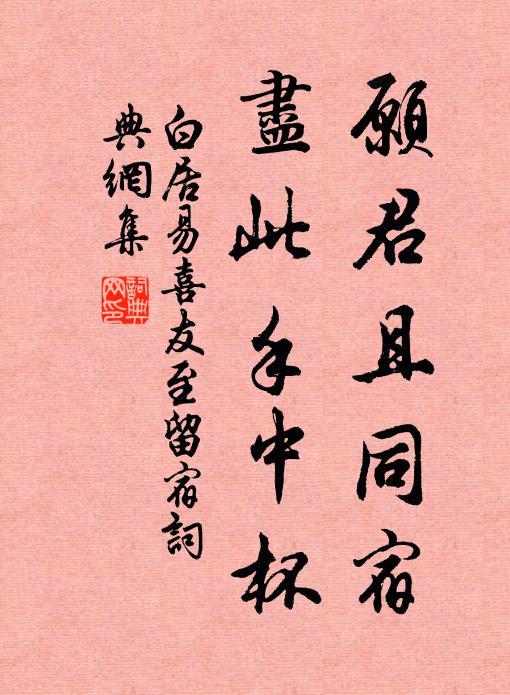 願君且同宿
盡此手中杯
白居易喜友至留宿詞
典網集
詞典
网印